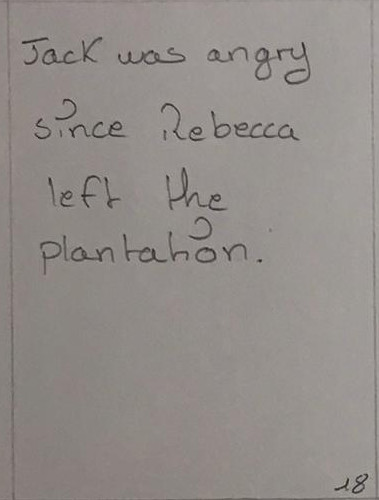 Jack was angry
since Rebecca
left the
plantation.
18